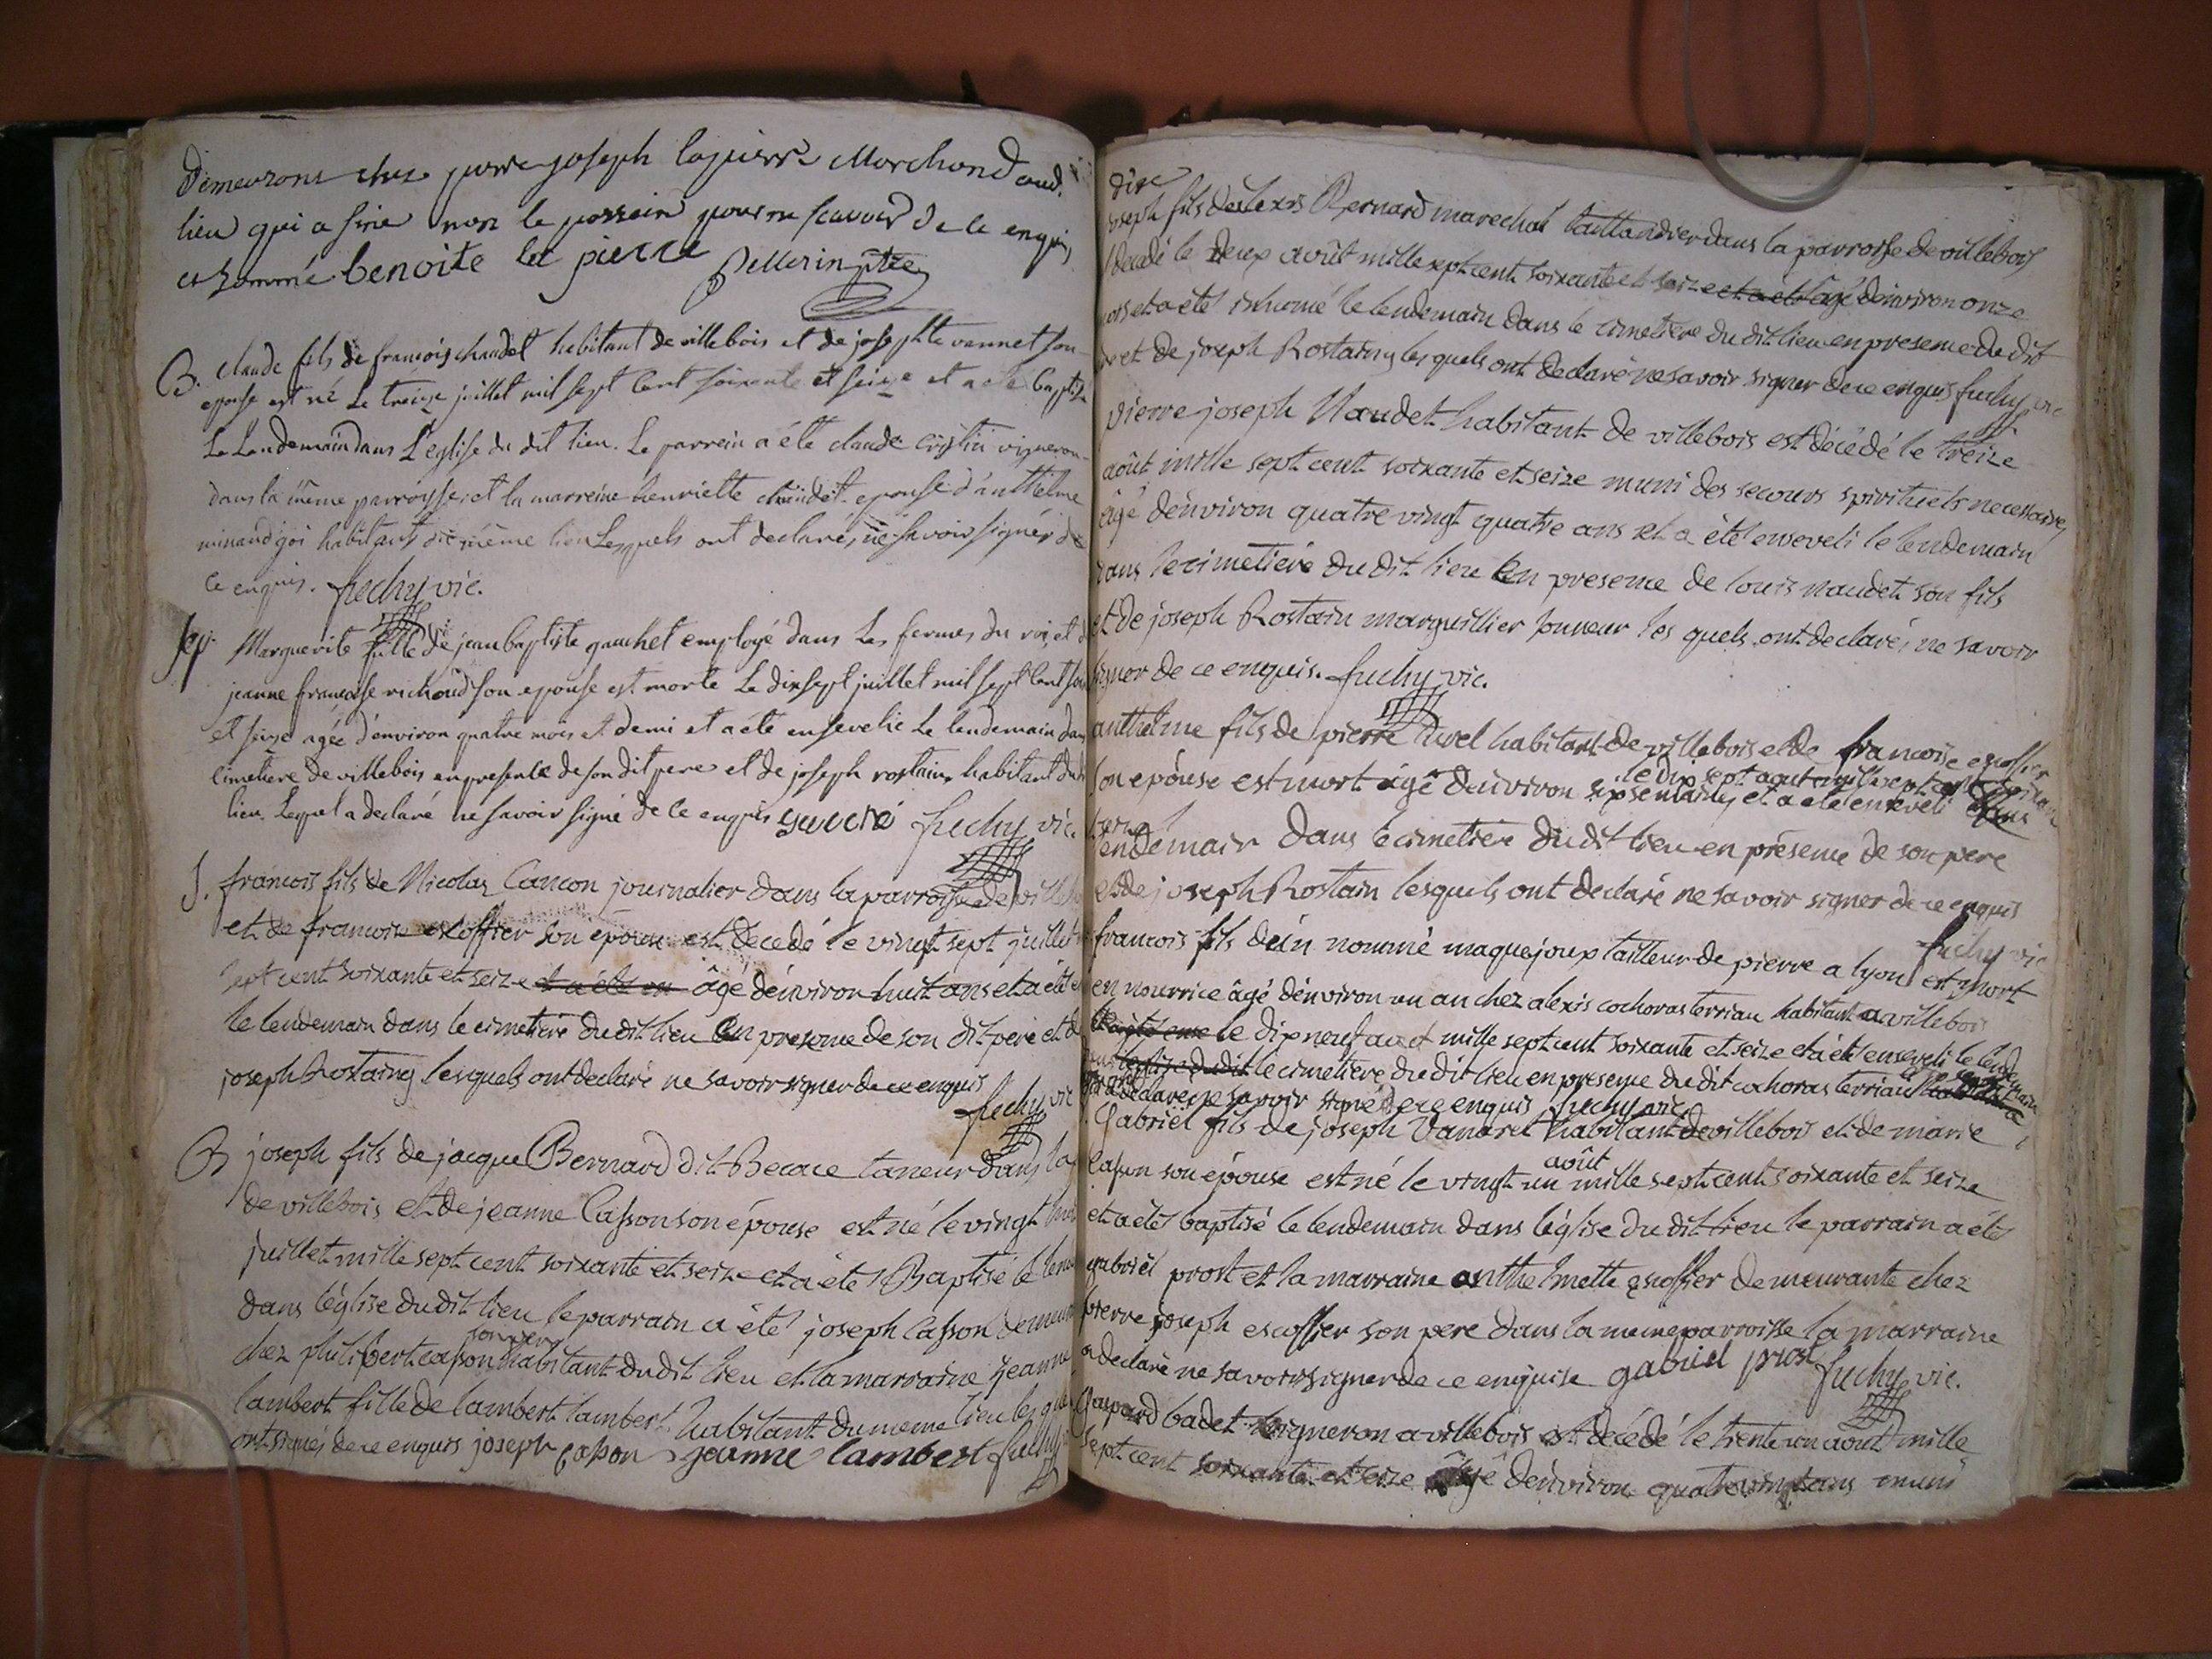 demeurant chez pierre joseph lapierre Marchand aud.
lieu qui a siné non le parrain pour ne scavoir de ce enquis
et sommé benoite la pierre Pellerin ptre
B. claude fils de francois chaudet habitant de villebois et de josephte vannet son
epouse est né Le treize juillet mil sept Cent soixante et seize et a eté baptisé
Le Lendemain dans L'eglise du dit lieu. Le parrein a été claude cristin vigneron
dans la même parroysse, et la marreine henriette chaudet epouse d'anthelme
minandgoi habitants du même lieu Lesquels ont declarés ne savoir signer de
Ce enquis. fuchy vic.
sep. Marguerite fille de jean baptiste gauchet employé dans Les fermes du roi, et de
jeanne francoise richoud son epouse est morte Le dix sept juillet mil sept Cent soi
et seize agée d'environ quatre mois et demi et a été ensevelie Le lendemain dans
Cimetiere de villebois en presence de son dit pere et de joseph rostain, habitant dudit
lieu, Lequel a declaré ne savoir signé de Ce enquis fuchy vic.
S. francois fils de Nicolas Cancon journalier dans la parroisse de ville
et de francoise escoffier son épouse est decedé le vingt sept juillet
sept cent soixante et seize et a été en âgé d'environ huit ans et a été
le lendemain dans le cimetière du dit lieu en presence de son dit père et de
joseph Rostaing lesquels ont declaré ne savoir signer de ce enquis
fuchy vic
B joseph fils de jacque Bernard dit Becace taneur dans la
de villebois et de jeanne Casson son épouse est né le vingt
juillet mille sept cent soixante et seize et a été Baptisé le lend
dans l'église du dit lieu le parrain a été joseph Casson demeur
son pere
chez philibert casson habitant du dit lieu et la marraine jeanne
lambert fille de lambert lambert habitant du meme lieu lesquels
ont signés de ce enquis joseph Casson jeanne lambert fuchy
joseph fils d'alexis Bernard marechal taillandier dans la parroisse de villebois
decedé le deux août mille sept cent soixante et seize et a été âgé d'environ onze
mois et a été inhumé le lendemain dans le cimetiere du dit lieu en presence du dit
et de joseph Rostaing lesquels ont declaré ne savoir signer de ce enquis fuchy vic
pierre joseph Naudet habitant de villebois est décédé le treize
août mille sept cent soixante et seize muni des secours spirituels necessaires
âgé d'environ quatre vingt quatre ans et a été enseveli le lendemain
dans le cimetière du dit lieu en presence de louis naudet son fils
et de joseph Rostain marguillier sonneur les quels ont declaré, ne savoir
signer de ce enquis. fuchy vic.
anthelme fils de pierre habitant de villebois et de francoise escoffier
le dix sept aout mille sept cent soixante
son epouse est mort âgé d'environ six semaines et a été enseveli dans
lendemain dans le cimetière du dit lieu en présence de son pere
et de joseph Rostain lesquels ont declaré ne savoir signer de ce enquis
fuchy vic
francois fils d'un nommé maquejoux tailleur de pierre a lyon est mort
en nourrice âgé d'environ un an chez alexis cochoras terriau habitant a villebois
le dix neuf aout mille sept cent soixante et seize et a été enseveli le lendemain
l'eglise du dit le cimetière du dit lieu en presence du dit cochoras terriau
a declaré ne savoir signé de ce enquis fuchy vic.
Gabriel fils de joseph Vanaret habitant de villebois et de marie
août
Casson son épouse est né le vingt un mille sept cent soixante et seize
et a été baptisé le lendemain dans l'église du dit lieu le parrain a été
gabriel prost et la marraine anthelmette escoffier demeurante chez
pierre joseph escoffier son pere dans la meme parroisse la marraine
a declaré ne savoir signer de ce enquise gabriel prost fuchy vic.
Gaspard badet vigneron a villebois est décédé le trente un aout mille
sept cent soixante et seize âgé d'environ quatre vingt ans muni